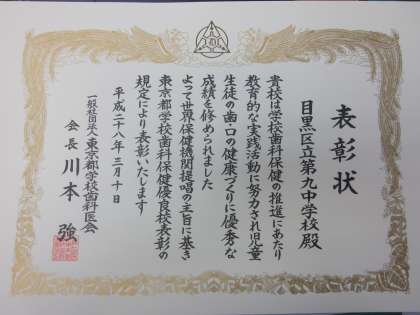 表彰状
目黒区立第九中学校殿
貴校は学校歯科保健の推進にあたり
教育的な実践活動に努力され児童
生徒の歯・口の健康づくりに優秀な
成績を修められました
よって世界保健機関提唱の主旨に基き
東京都学校歯科保健優良校表彰の
規定により表彰いたします
平成二十八年三月十日
一般社団法人東京都学校歯科医会
会長 川本 強